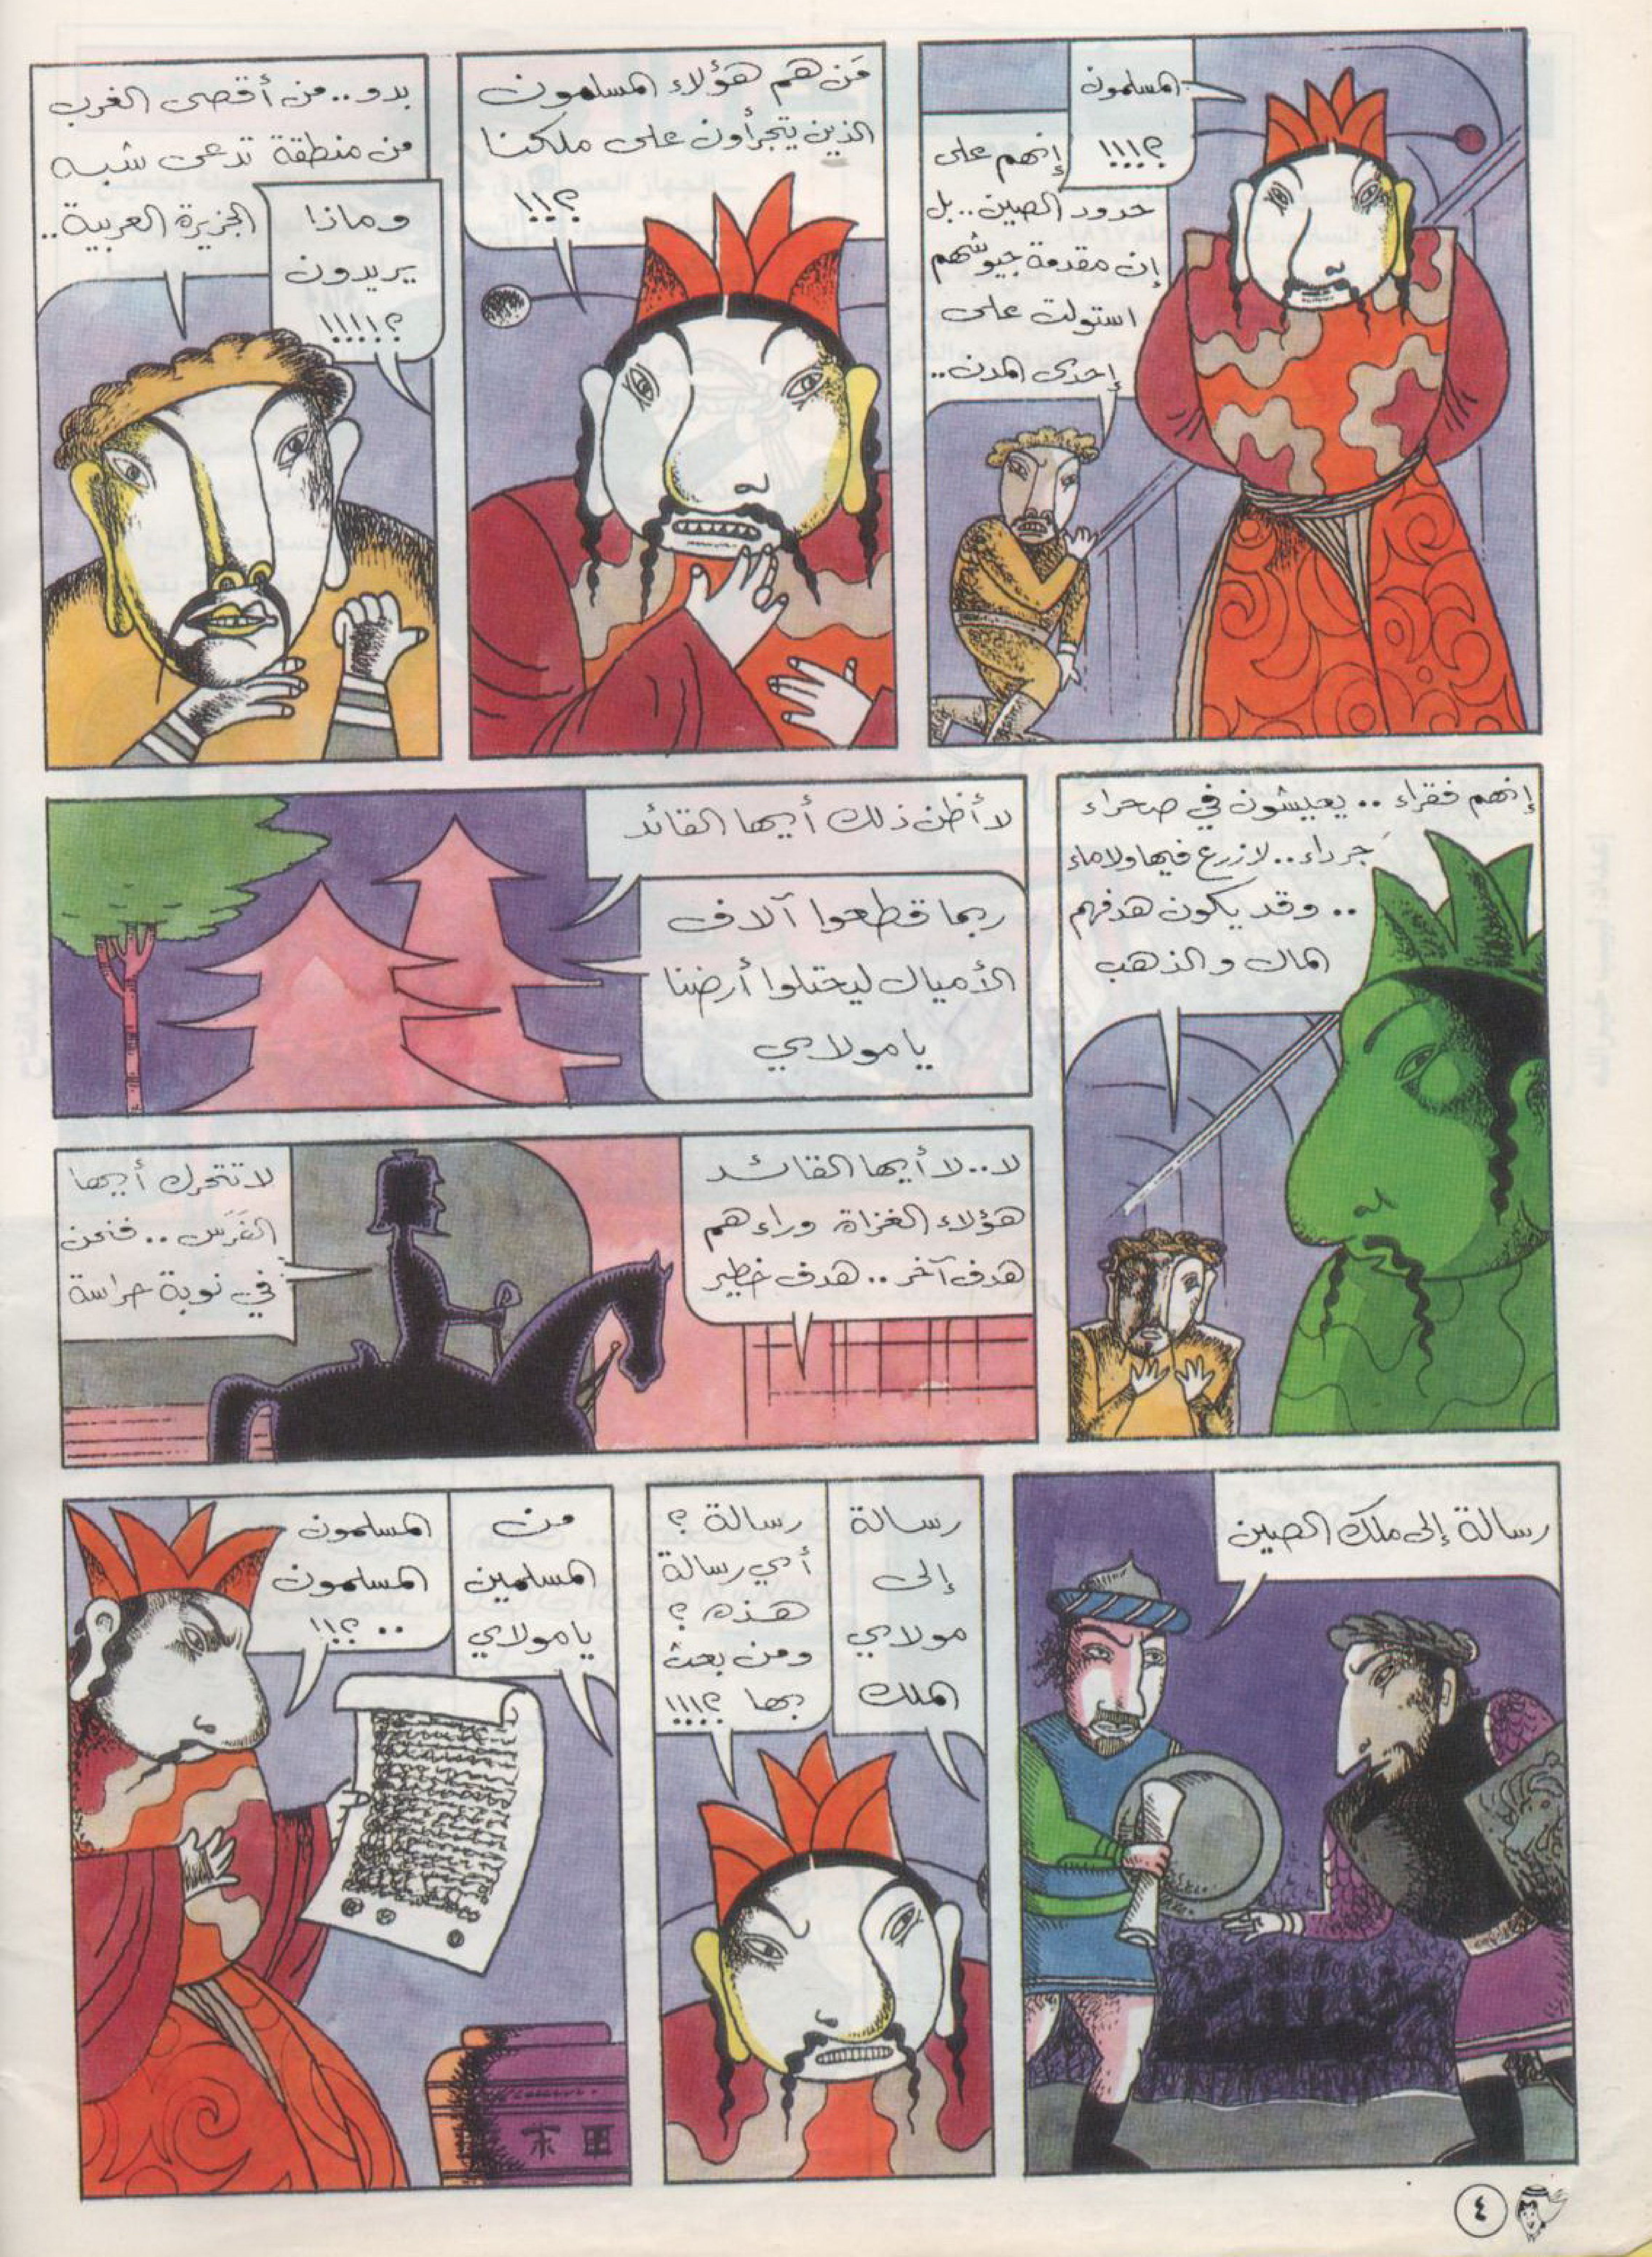 المسلمون
؟!!!
إنهم على
حدود الصين.. بل
إن مقدمة جيوشهم
استولت على
إحدى المدن..
مَن هم هؤلاء المسلمون
الذين يتجرأون على ملكنا
؟!!!
بدو.. من أقصى الغرب
من منطقة تدعى شبه
الجزيرة العربية..
وماذا
يريدون
؟!!!!
إنهم فقراء .. يعيشون في صحراء
جَرداء.. لا زرع فيها ولا ماء
.. وقد يكون هدفهم
المال والذهب
لا أظن ذلك أيها القائد
ربما قطعوا آلاف
الأميال ليحتلوا أرضنا
يا مولاي
لا.. لا أيها القائد
هؤلاء الغزاة وراءهم
هدف آخر.. هدف خطير
لا تتحرك أيها
الفَرَس .. فنحن
في نوبة حراسة
رسالة إلى ملك الصين
رسالة
إلى
مولاي
الملك
رسالة ؟
أي رسالة
هذه ؟
ومن بعث
بها ؟!!!
من
المسلمين
يا مولاي
المسلمون
المسلمون
.. ؟!!
٤